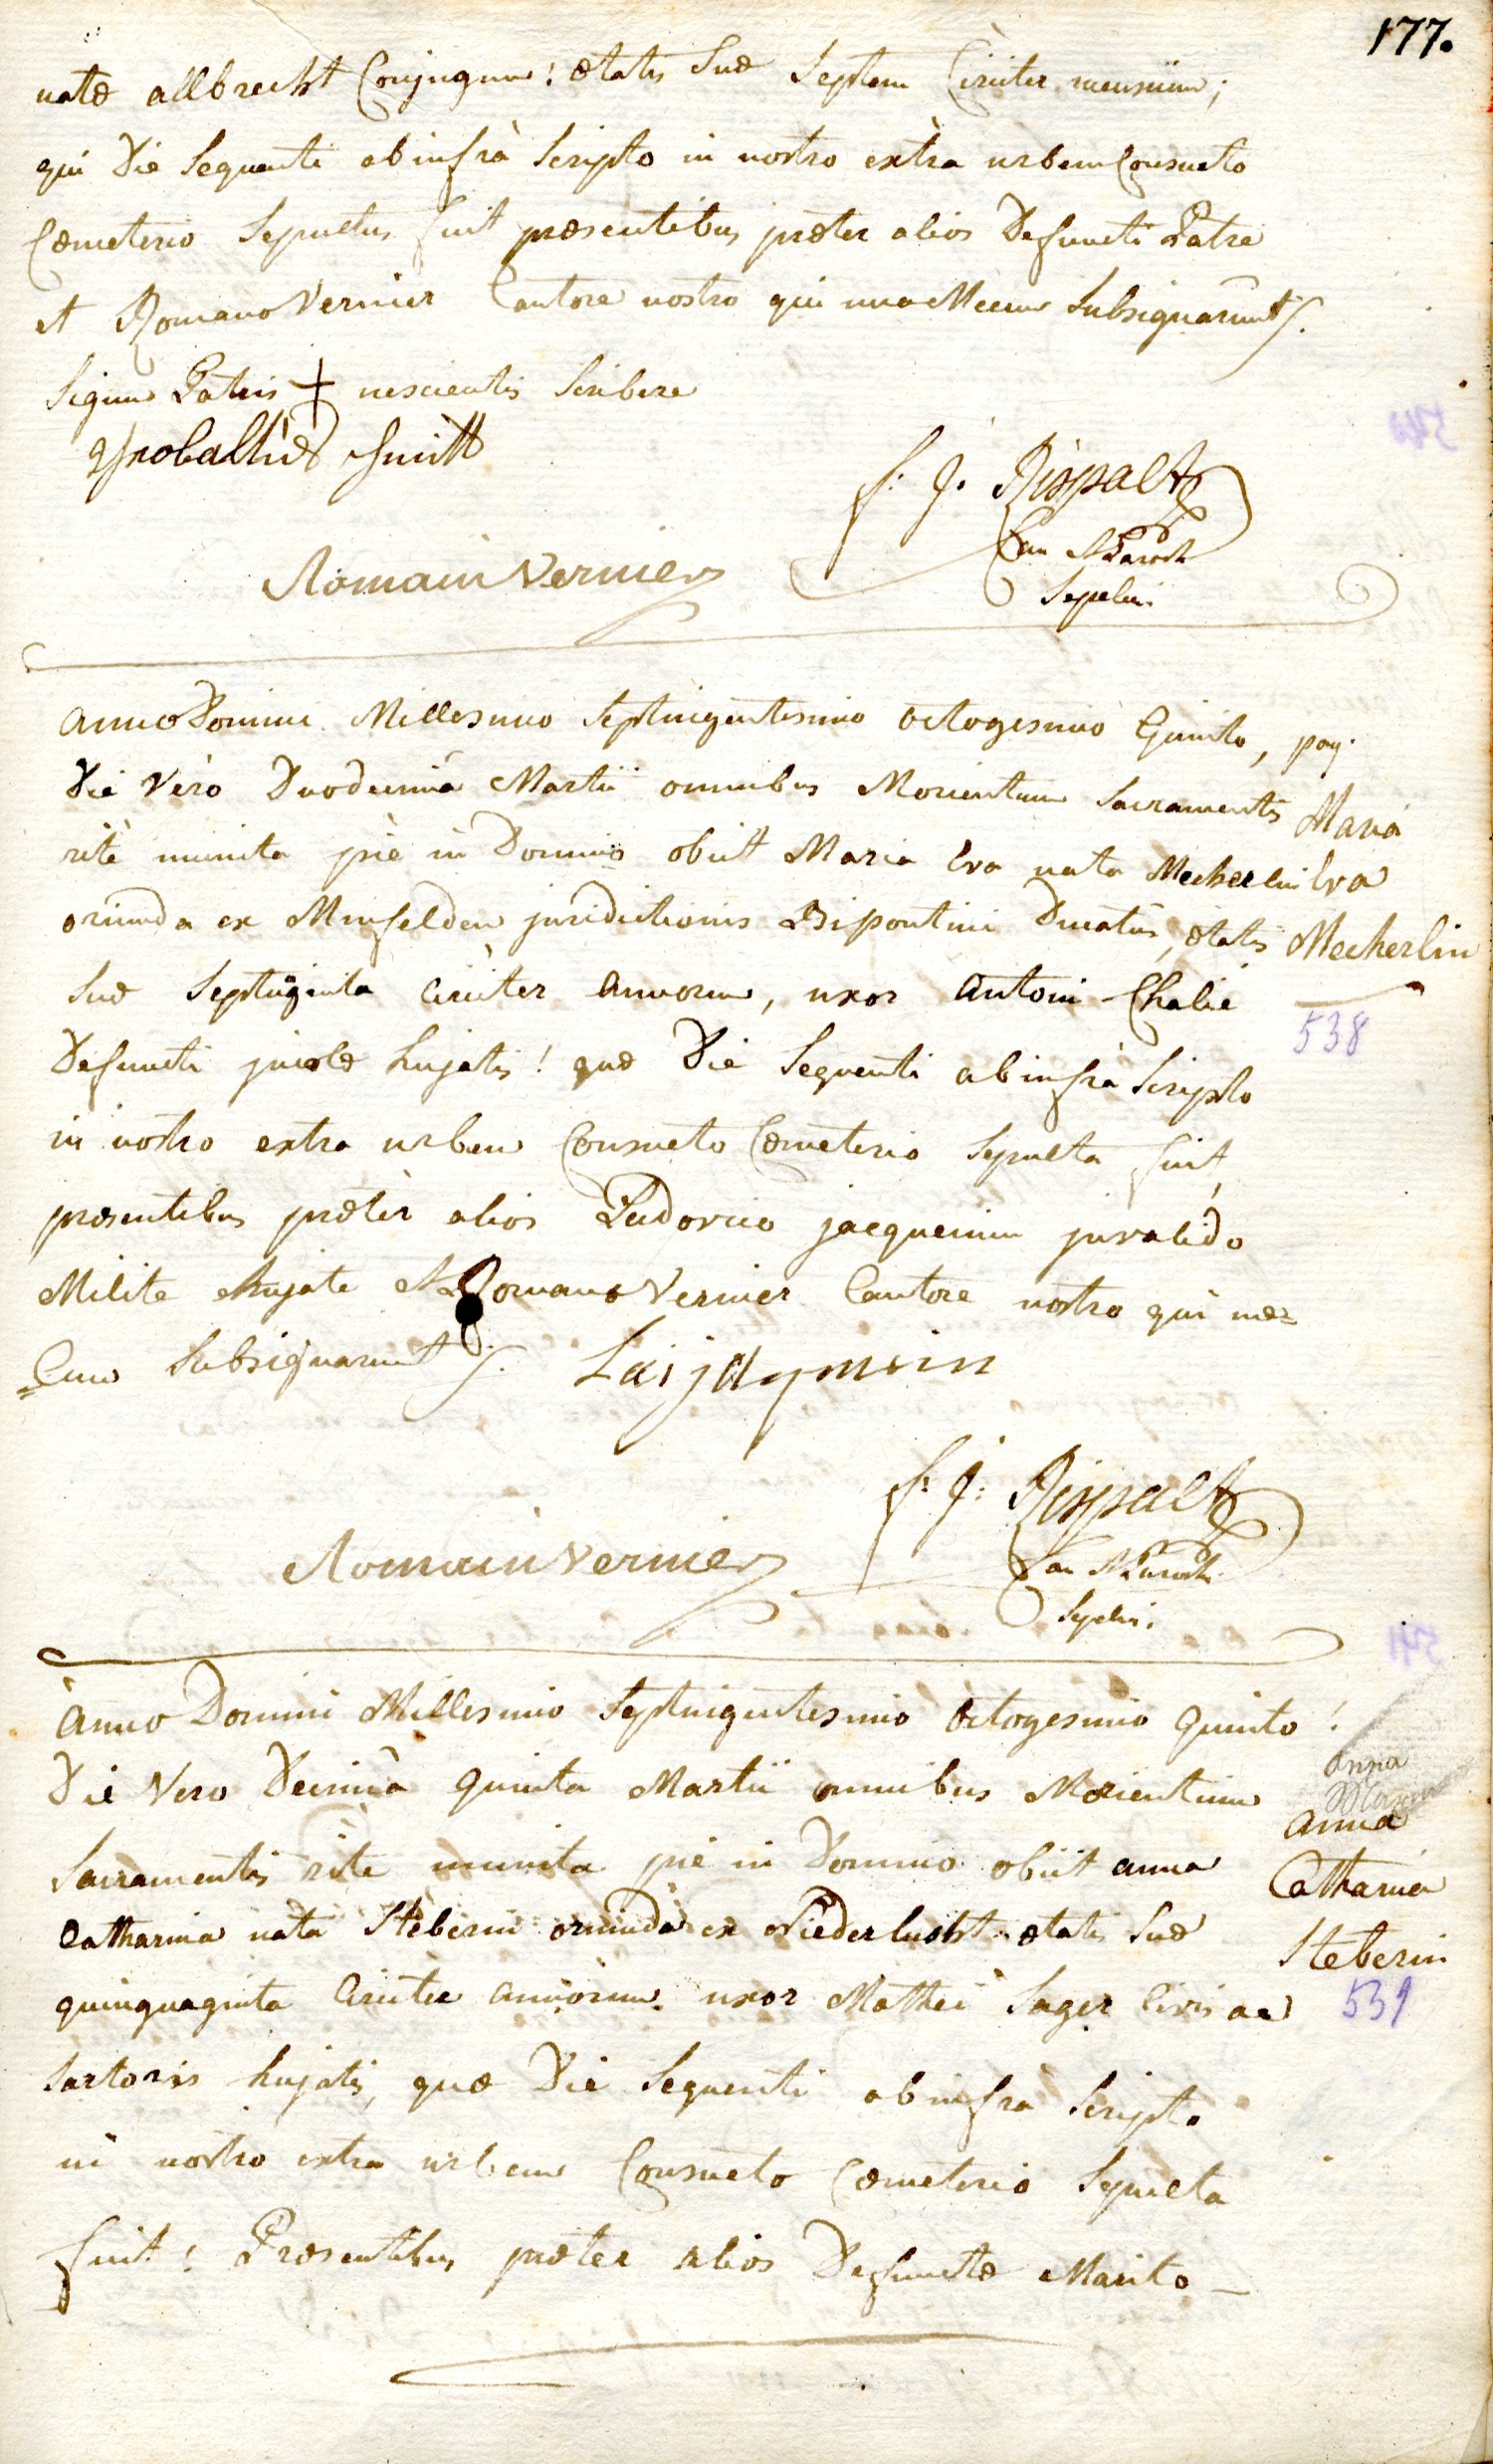 177.
natæ allbrecht Conjugum: ætatis Suæ Septem Circiter mensium;
qui Die Sequenti ab infrà Scripto in nostro extra urbem Consueto
Cæmeterio Sepultus fuit præsentibus præter alios Defuncti Patre
et Romano Vernier Cantore nostro qui una Mecum Subsignarunt /.
Signum Patris + nescientis Scribere
smitt
f: J. Rispalt
Can R Paroch
Sepelivi
Romain Vernier
anno Domini Millesimo Septingentesimo octogesimo Quinto, pag.
Die Verò Duodecimâ Martii omnibus Morientium Sacramentis
ritè munita piè in Domino obiit Maria Eva nata Mecherlin
oriunda ex Minfelden juridictionis Bipontini Ducatus, ætatis
Suæ Septuginta circiter annorum, uxor Antoni Chalié
Defuncti hujatis! quæ Die Sequenti ab infrà Scripto
in nostro extra urbem Consueto Cæmeterio Sepulta fuit,
præsentibus præter alios Ludovico jacquemin invalido
Milite hujate et Romano Vernier Cantore nostro qui me=
=Cum Subsignarunt /. Lai jaqmein
Maria
Eva
Mecherlin
538
f: J: Rispalt
Can R Paroch
Sepelivi.
Romain Vernier
Anno Domini Millesimo Septingentesimo Octogesimo Quinto!
Die Vero Decimâ Quinta Martii omnibus Morientium
Sacramentis rite munita pie in Domino obiit anna
Catharina nata Stèberin oriunda ex Niederlusbt ætatis Suæ
quinquaginta Circiter annorum uxor Mathei Sager Civis ac
Sartoris hujatis, quæ Die Sequenti ab infrà Scripto
in nostro extra urbem Consueto Cæmeterio Sepulta
fuit! Præsentibus præter alios Defunctæ Marito
anna
anna
Catharina
Steberin
539